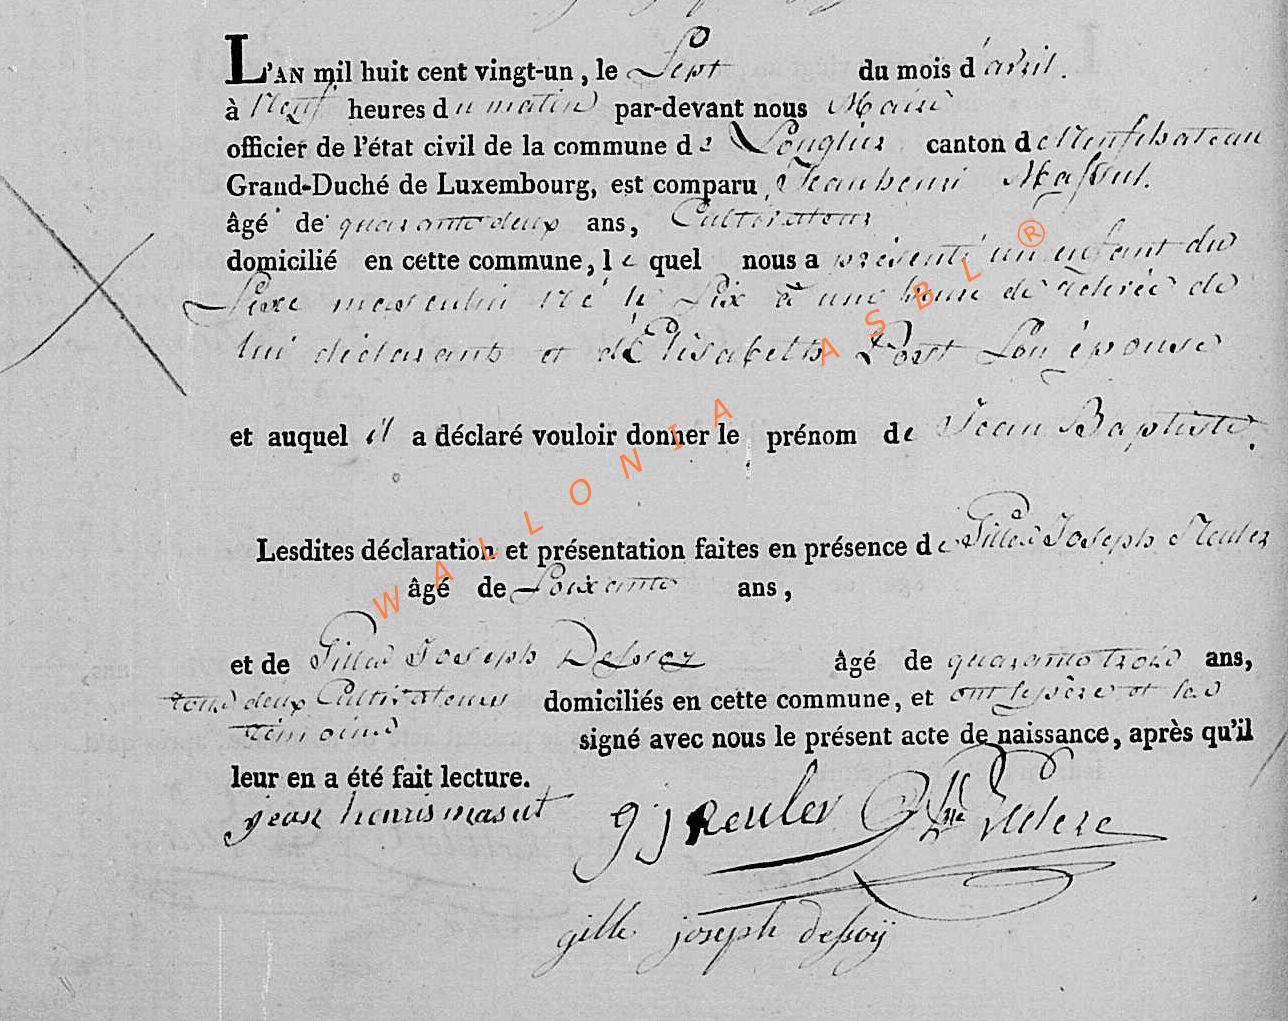 L'AN mil huit cent vingt-un, le Sept du mois d'avril.
à Neuf heures du matin par-devant nous Maire
officier de l'état civil de la commune de Longlier canton de Neufchateau
Grand-Duché de Luxembourg, est comparu Jean henri Massut.
âgé de quarante deux ans, Cultivateur
domicilié en cette commune, lequel nous a présenté un enfant du
Sexe masculin né le Six à une heure de relevée de
lui déclarant et d'Elisabeth Post Son épouse
et auquel il a déclaré vouloir donner le prénom de Jean Baptiste.
Lesdites déclaration et présentation faites en présence de Gilles Joseph
âgé de Soixante ans,
et de Gilles Joseph Dessoy âgé de quarante trois ans,
tous deux Cultivateurs domiciliés en cette commune, et ont le père et les
témoins signé avec nous le présent acte de naissance, après qu'il
leur en a été fait lecture.
jean henri masut g j
gille joseph dessoÿ
WALLONIA ASBL ®